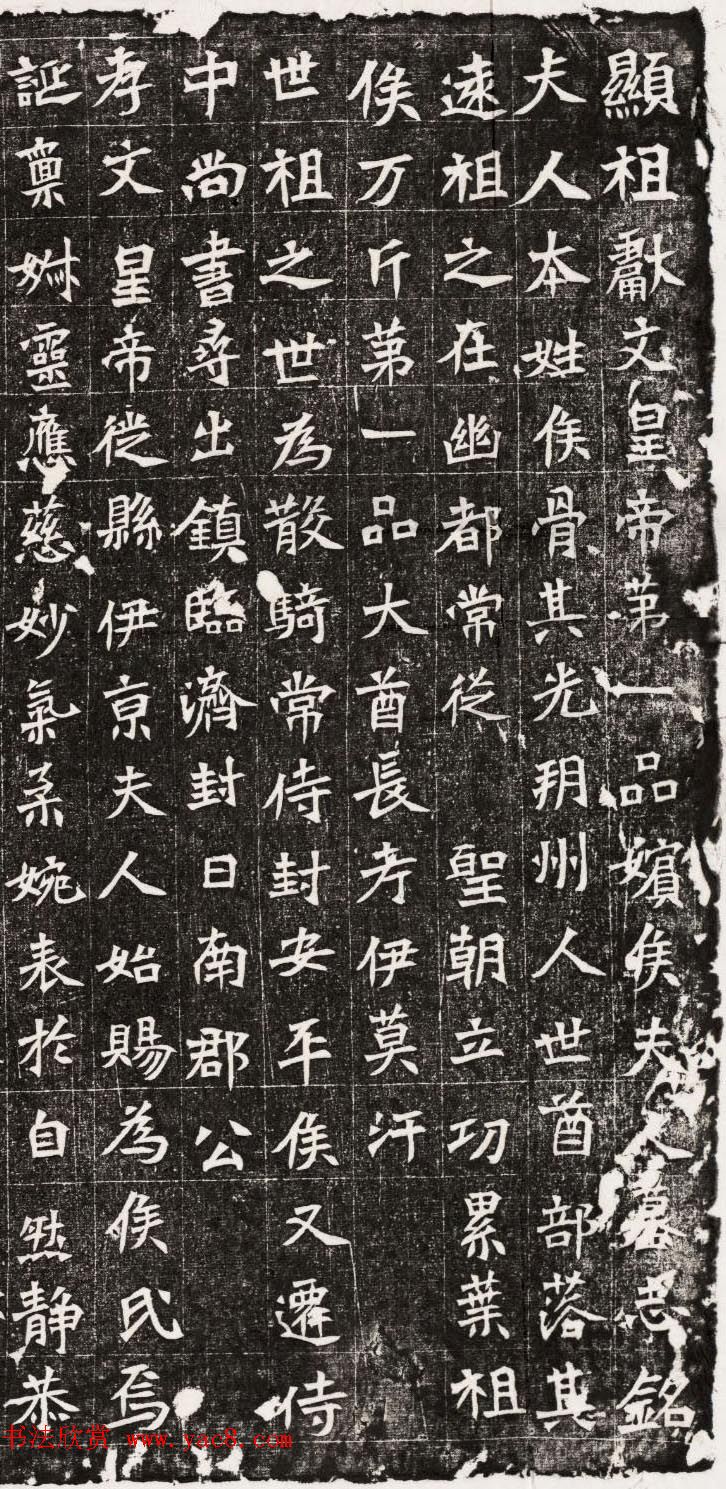 顯祖獻文皇帝第一品嬪侯夫人墓志銘
夫人本姓侯骨其先朔州人世酋部落其
遠祖之在幽都常從 聖朝立功累葉祖
侯万斤第一品大酋長考伊莫汗
世祖之世為散騎常侍封安平侯又遷侍
中尚書尋出鎮臨濟封日南郡公
孝文皇帝徙縣伊京夫人始賜為侯氏焉
誕稟姊靈應慈妙氣柔婉表於自然靜恭
书法欣赏 www.yac8.com